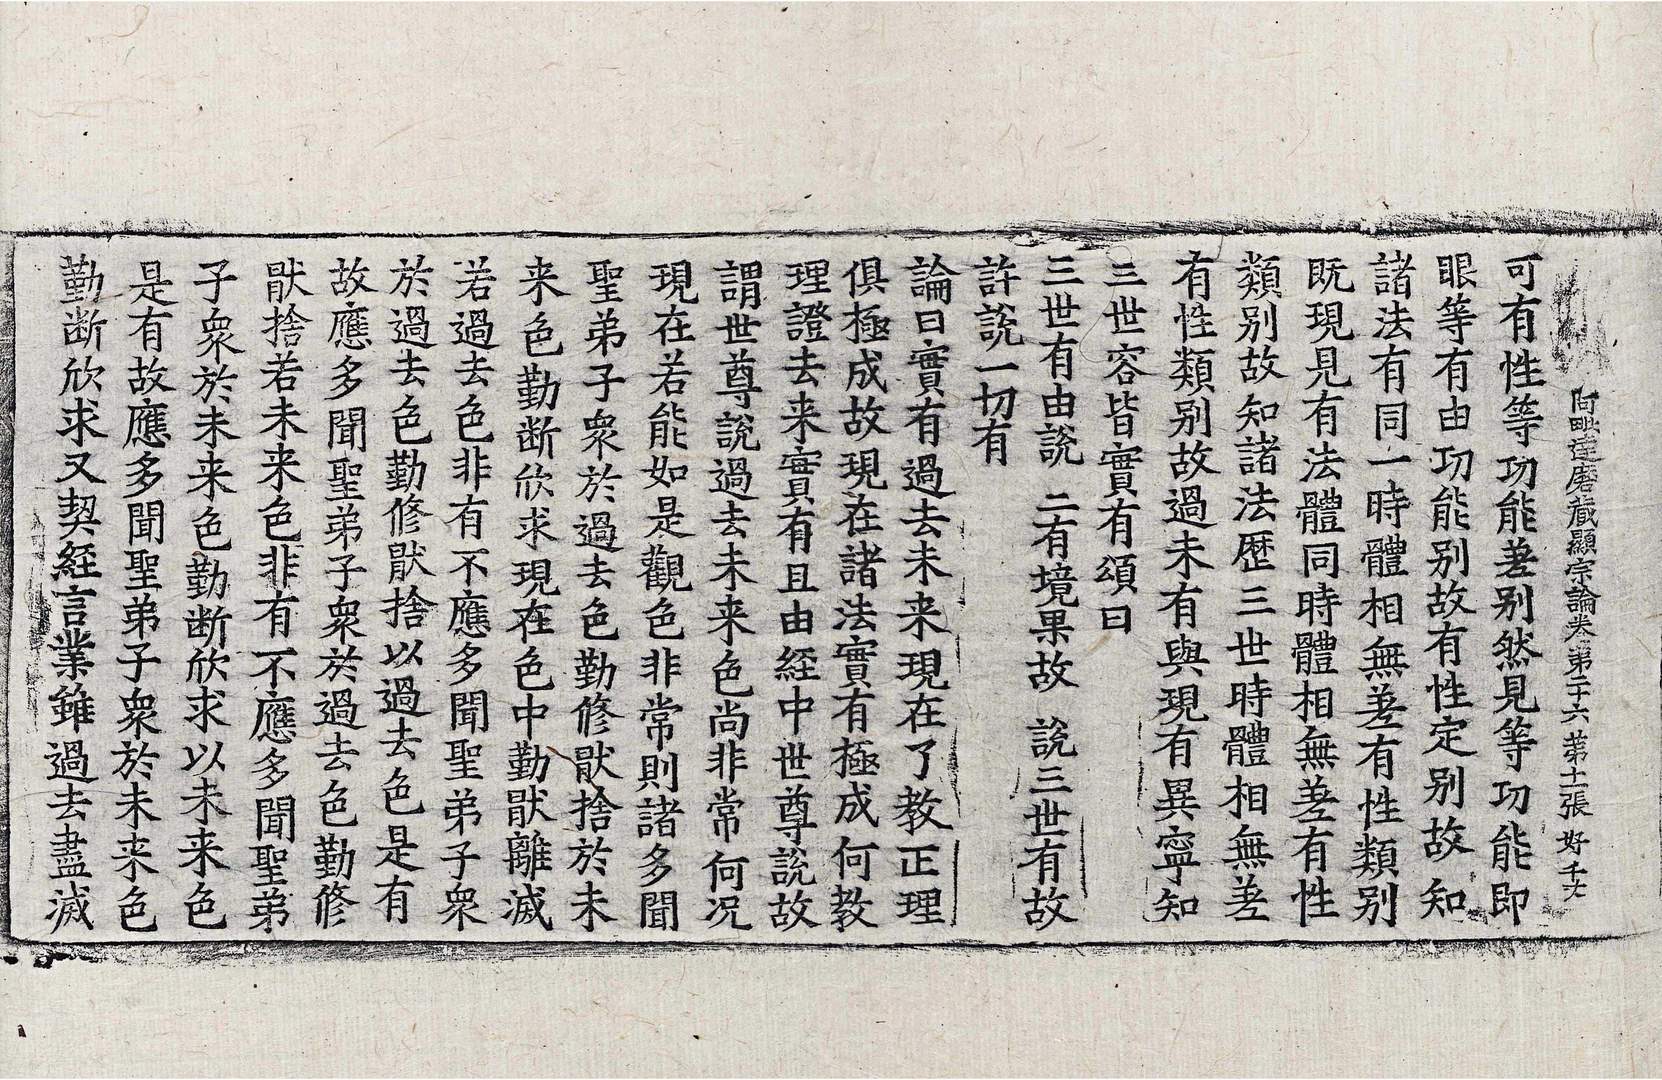 阿毗達磨藏顯宗論卷第二十六 第十一張 好 千大
可有性等功能差別然見等功能即
眼等有由功能別故有性定別故知
諸法有同一時體相無差有性類別
既現見有法體同時體相無差有性
類別故知諸法歷三世時體相無差
有性類別故過未有與現有異寧知
三世容皆實有頌曰
三世有由說 二有境果故 說三世有故
許說一切有
論曰實有過去未来現在了教正理
俱極成故現在諸法實有極成何教
理證去来實有且由經中世尊說故
謂世尊說過去未来色尚非常何况
現在若能如是觀色非常則諸多聞
聖弟子衆於過去色勤修猒捨於未
来色勤断欣求現在色中勤猒離滅
若過去色非有不應多聞聖弟子衆
於過去色勤修猒捨以過去色是有
故應多聞聖弟子衆於過去色勤修
猒捨若未来色非有不應多聞聖弟
子衆於未来色勤断欣求以未来色
是有故應多聞聖弟子衆於未来色
勤断欣求又契經言業雖過去盡滅